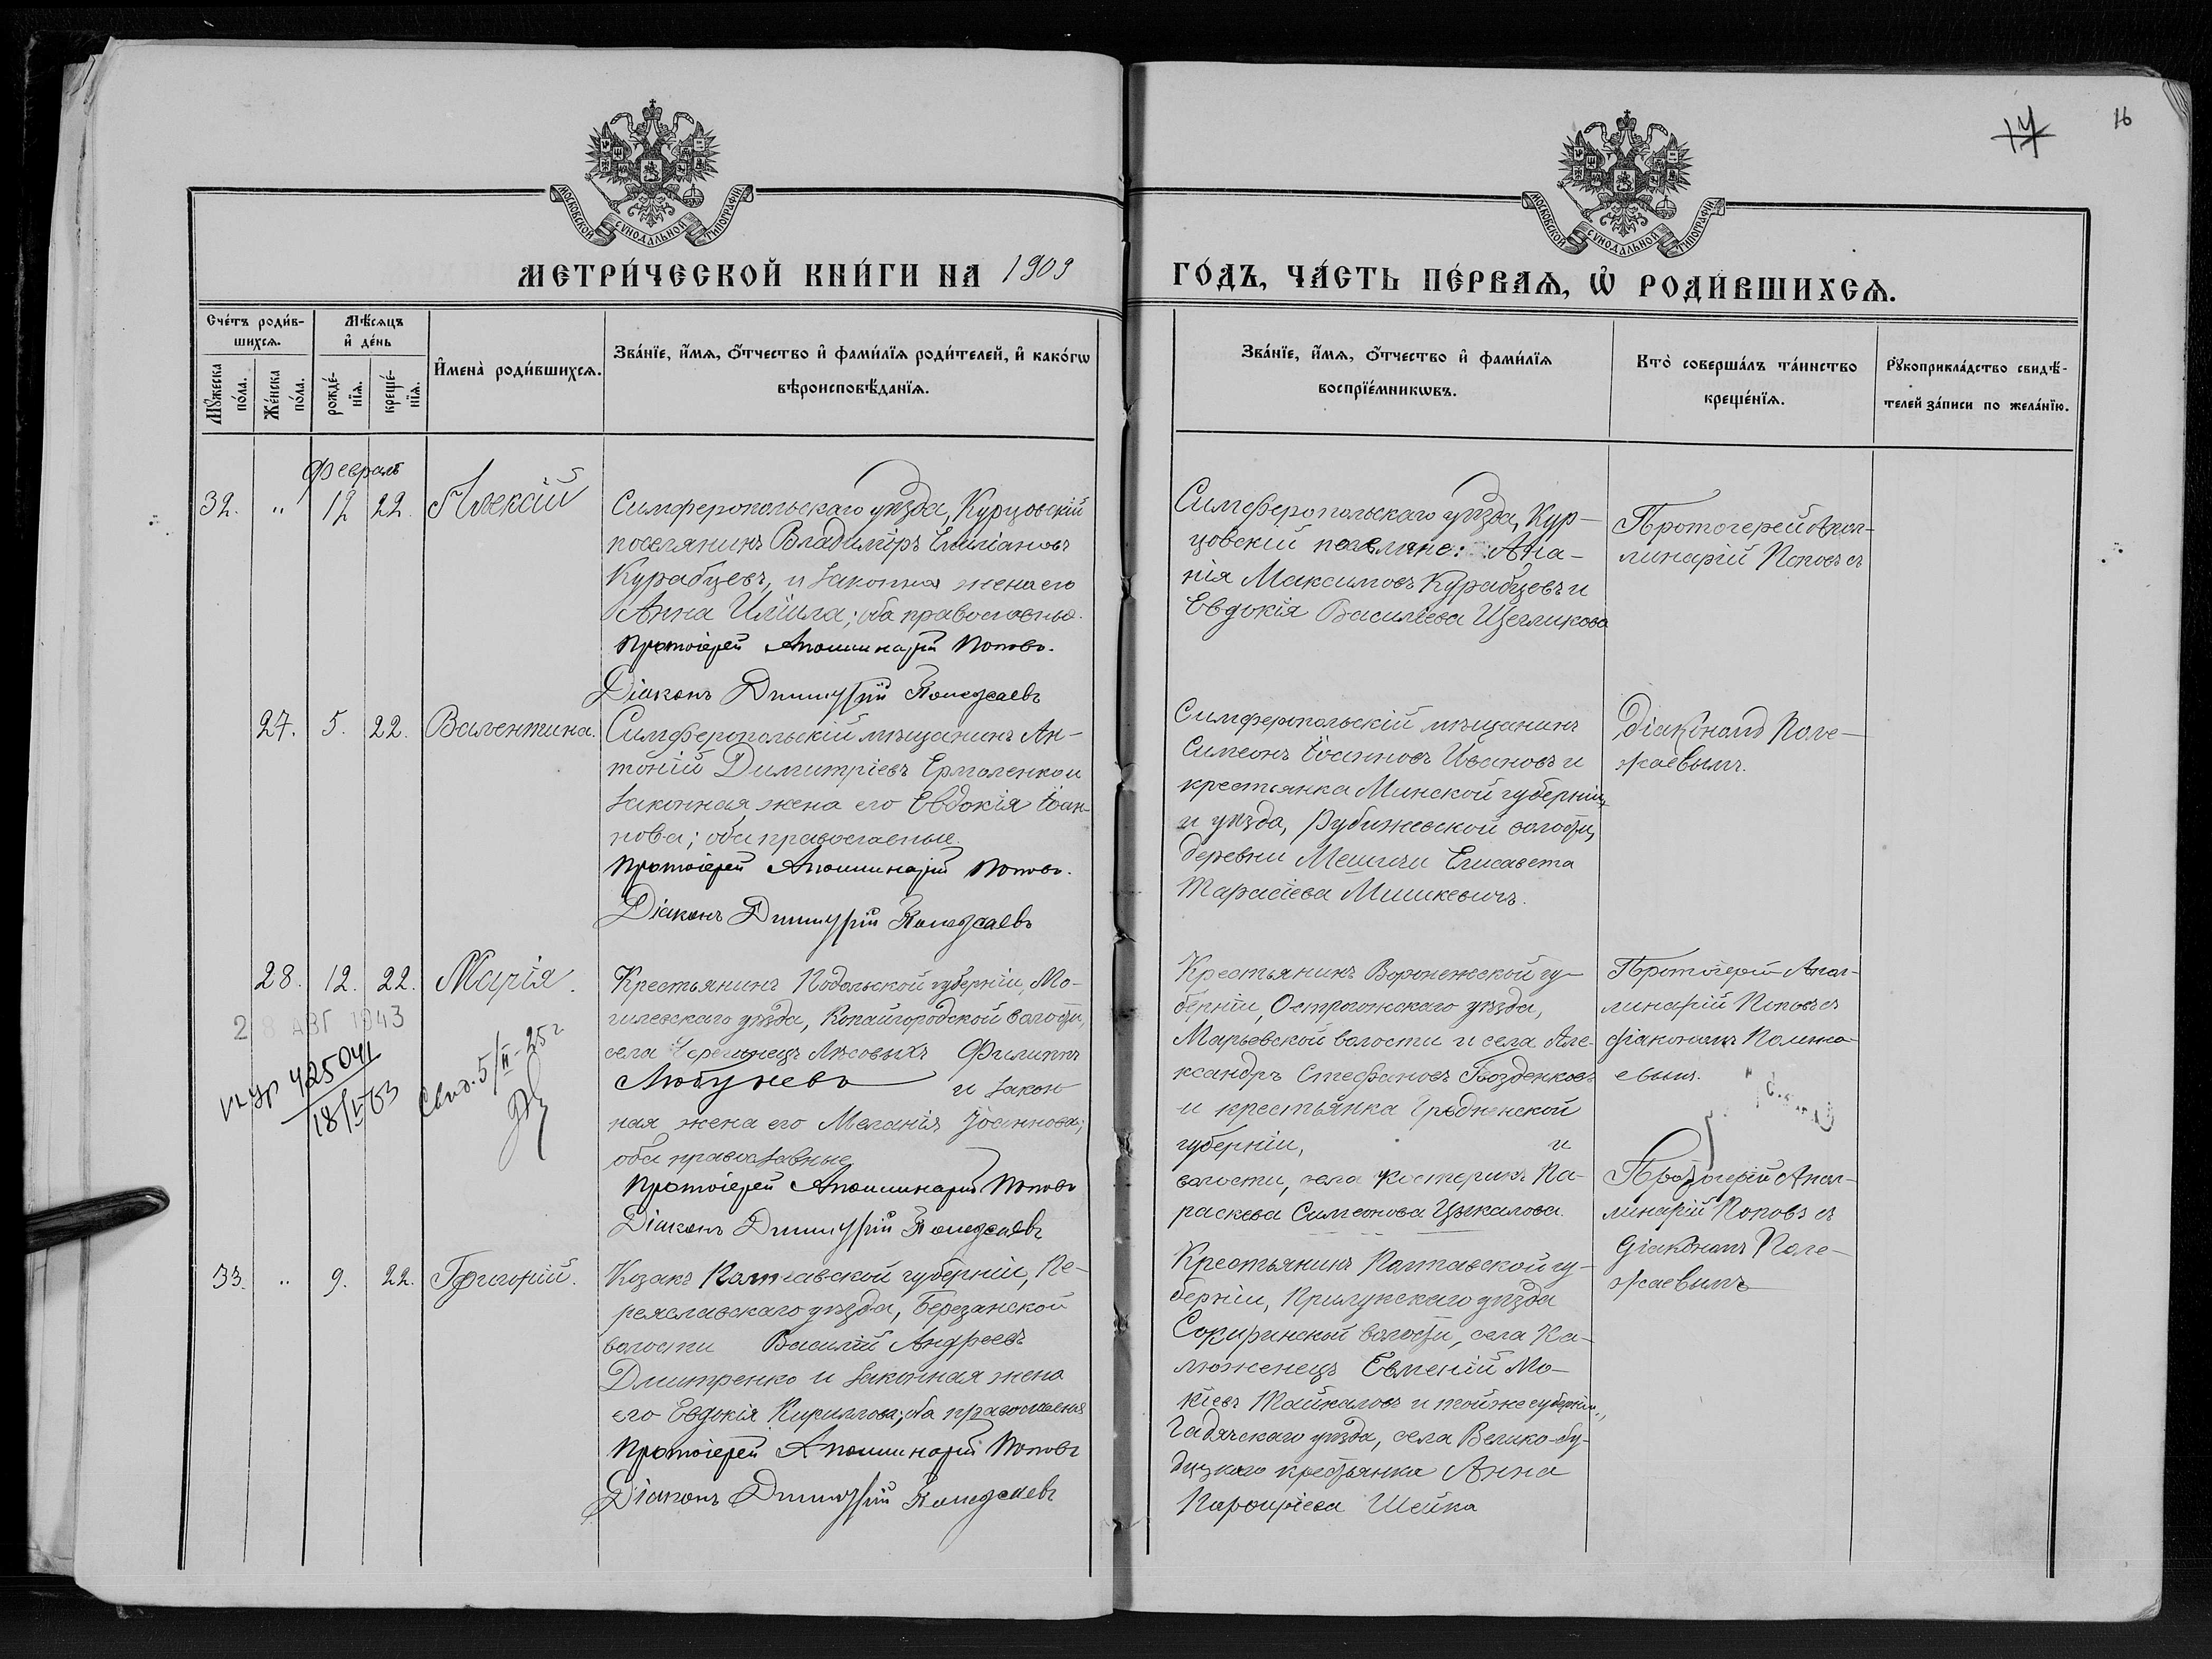 16
МОСКОВСКОЙ СУНОДАЛЬНОЙ ТИПОГРАФІИ
МОСКОВСКОЙ СУНОДАЛЬНОЙ ТИПОГРАФІИ
МЕТРИ́ЧЕСКОЙ КНИ́ГИ НА 1909
ГО́ДЪ, ЧА́СТЬ ПЕ́РВАѦ, Ѡ҆ РОДИ́ВШИХСѦ.
Сче́тъ роди́в-
шихсѧ.
Мꙋ́жеска
по́ла.
Же́нска
по́ла.
Мѣ́сѧцъ
и҆ де́нь
рожде́-
нїѧ.
креще́-
нїѧ.
И҆мена̀ роди́вшихсѧ.
Зва́нїе, и҆́мѧ, ѻ҆́тчество и҆ фами́лїѧ роди́телей, и҆ како́гѡ
вѣроисповѣ́данїѧ.
Зва́нїе, и҆́мѧ, ѻ҆́тчество и҆ фами́лїѧ
воспрїе́мникѡвъ.
Кто̀ соверша́лъ та́инство
креще́нїѧ.
Рꙋкоприкла́дство свидѣ́-
телей за́писи по жела́нїю.
Февраль
32. " 12 22. Алексій
Симферопольскаго уѣзда, Курцовскій
поселянинъ Владиміръ Емиліановъ
Курабцевъ, и законная жена его
Анна Ильина; оба православные.
Протоіерей Аполлинарій Поповъ.
Діаконъ Димитрій Полежаевъ
Симферопольскаго уѣзда, Кур-
цовскій поселяне: Ана-
нія Максимовъ Курабцевъ и
Евдокія Васильева Щегликова
Протоіерей Апол-
линарій Поповъ съ
27. 5. 22. Валентина.
Симферопольскій мѣщанинъ Ан-
тоній Димитріевъ Ермоленко и
законная жена его Евдокія Іоан-
нова; оба православные.
Протоіерей Аполлинарій Поповъ.
Діаконъ Димитрій Полежаевъ
Симферопольскій мѣщанинъ
Симеонъ Іоанновъ Ивановъ и
крестьянка Минской губерніи,
и уѣзда, Рубижевской волости,
деревни Мешичи Елисавета
Тарасіева Мишкевичъ.
Діакономъ Поле-
жаевымъ.
28. 12. 22. Марія.
28 АВГ 1943
425041
18/V 63
Свид. 5/II - 25г
Крестьянинъ Подольской губерніи, Мо-
гилевскаго уѣзда, Копайгородской волости,
села Лѣсовыхъ Филиппъ
и закон
ная жена его Меланія Іоаннова;
оба православные
Протоіерей Аполлинарій Поповъ
Діаконъ Димитрій Полежаевъ
Крестьянинъ Воронежской гу-
берніи, Острогожскаго уѣзда,
Марьевской волости и села Але-
ксандръ Стефановъ Гвозденковъ
и крестьянка Гродненской
губерніи, и
волости, села Костеринъ Па-
раскева Симеонова Цыкалова.
Протоіерей Апол-
линарій Поповъ съ
діакономъ Полежа-
евымъ.
33. " 9. 22. Григорій.
Козакъ Полтавской губерніи, Пе-
реяславскаго уѣзда, Березанской
волости Василій Андреевъ
Дмитренко и законная жена
его Евдокія Кириллова; оба православные
Протоіерей Аполлинарій Поповъ
Діаконъ Димитрій Полежаевъ
Крестьянинъ Полтавской гу-
берніи, Прилукскаго уѣзда
Сокиринской волости, села Ка-
люженецъ Евменій Мо-
кіевъ Майкаловъ и тойже губерніи,
Гадячскаго уѣзда, села Велико-бу-
дищкаго крестьянка Анна
Парфиріева Шейка
Протоіерей Апол-
линарій Поповъ съ
діакономъ Поле-
жаевымъ